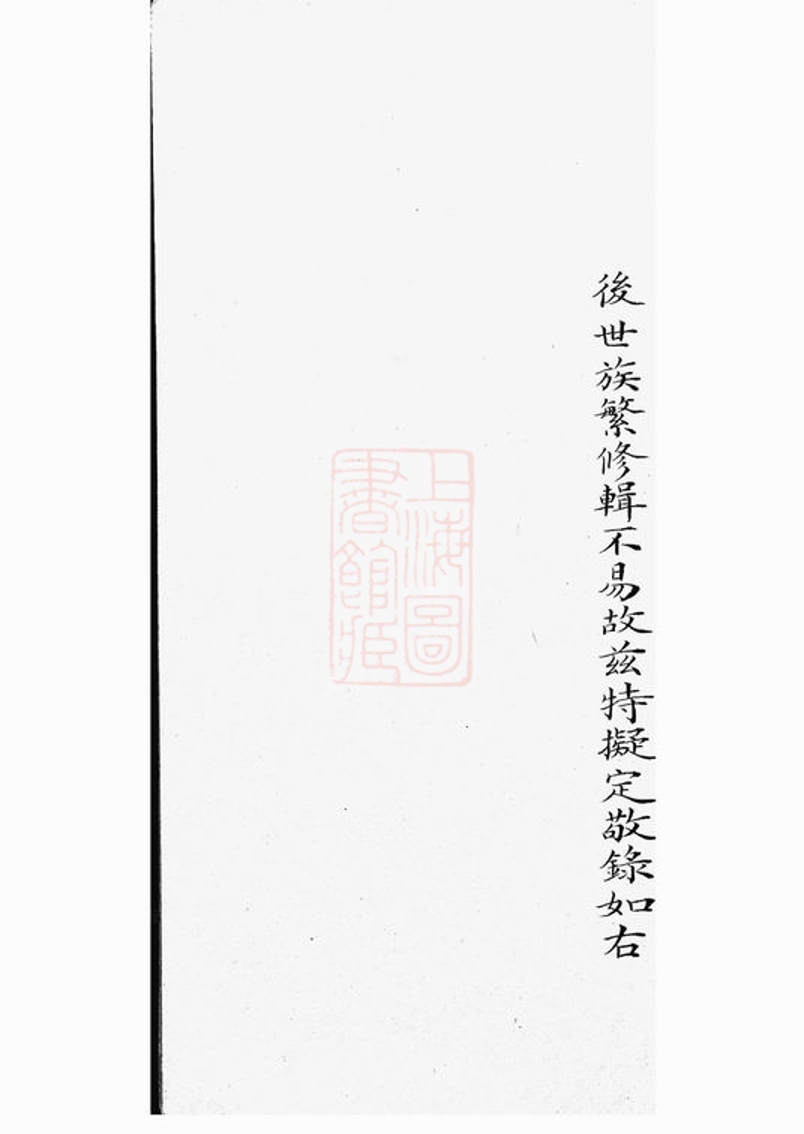 後世族繁修輯不易故茲特擬定敬錄如右
上海圖
書館藏